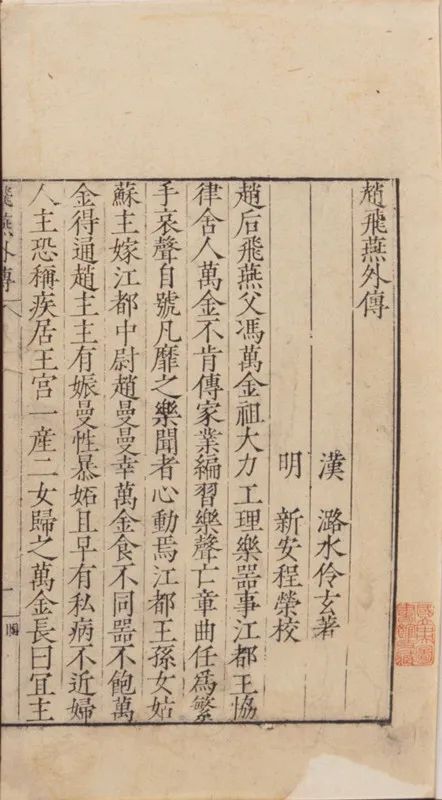 趙飛燕外傳
漢　潞水伶玄著
明　新安程榮校
趙后飛燕父馮萬金祖大力工理樂器事江都王協
律舍人萬金不肯傳家業編習樂聲亡章曲任爲繁
手哀聲自號凡靡之樂聞者心動焉江都王孫女姑
蘇主嫁江都中尉趙曼曼幸萬金食不同器不飽萬
金得通趙主主有娠曼性暴妬且早有私病不近婦
人主恐稱疾居王宮一産二女歸之萬金長曰宜主
燕外傳
一